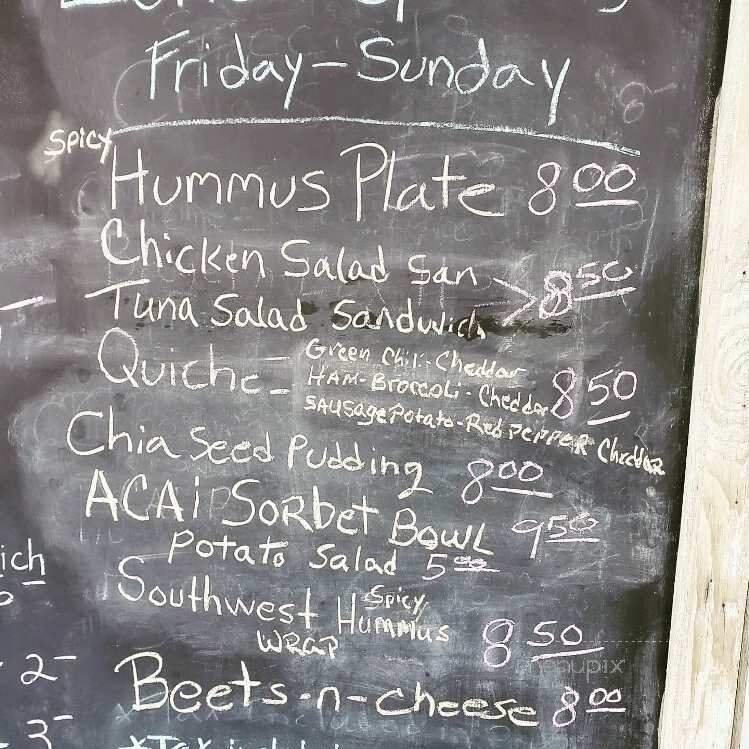 Friday-Sunday
Spicy
Hummus Plate 8 00
Chicken Salad San
Tuna Salad Sandwich > 8 50
Quiche - Green Chili-Cheddar
HAM-Broccoli-Cheddar 8 50
SAUSage Potato-Red PePPER Cheddar
Chia Seed Pudding 8 00
ACAi SoRbet BOWL 9 50
Potato Salad 5 00
Southwest Spicy Hummus 8 50
WRaP
Beets-n-cheese 8 00
ich
2-
3-
menupix